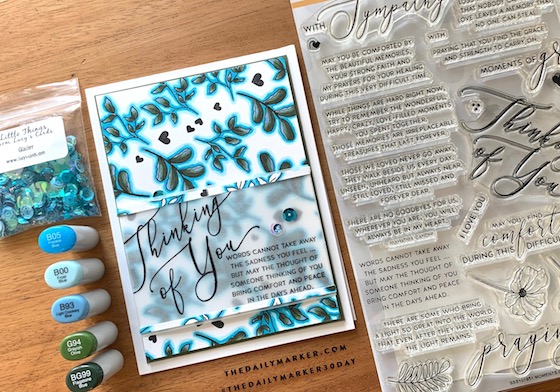 Little Things
from Lucy's Cards
Glacier
B05
B00
Frost Blue
B93
Light Crockery
Blue
G94
Grayish
Olive
BG99
Flagstone
Blue
Thinking
of You
WORDS CANNOT TAKE AWAY
THE SADNESS YOU FEEL —
BUT MAY THE THOUGHT OF
SOMEONE THINKING OF YOU
BRING COMFORT AND PEACE
IN THE DAYS AHEAD.
THEDAILYMARKER.COM
#THEDAILYMARKER30DAY
WITH Sympathy
MAY YOU BE COMFORTED
BY THE BEAUTIFUL MEMORIES,
YOUR STRONG FAITH AND
MY PRAYERS FOR YOUR HEALING
DURING THIS VERY DIFFICULT TIME.
WHILE THINGS ARE HARD RIGHT NOW,
TRY TO REMEMBER THE WONDERFUL,
CRAZY, LOVE FILLED MOMENTS
YOU SPENT TOGETHER.
THOSE MEMORIES ARE IRREPLACEABLE
TREASURES THAT LAST FOREVER.
THOSE WE LOVED NEVER GO AWAY
THEY WALK BESIDE US ALWAYS
UNSEEN, UNHEARD BUT ALWAYS NEAR
STILL LOVED, STILL MISSED
FOREVER DEAR.
THERE ARE NO GOODBYES FOR US.
WHEREVER YOU ARE, YOU WILL
ALWAYS BE IN MY HEART.
WORDS CANNOT TAKE AWAY
THE SADNESS YOU FEEL —
BUT MAY THE THOUGHT OF
SOMEONE THINKING OF YOU
BRING COMFORT AND PEACE
IN THE DAYS AHEAD.
THERE ARE SOME WHO BRING
A LIGHT SO GREAT INTO THIS WORLD
THAT EVEN AFTER THEY HAVE GONE
THE LIGHT REMAINS.
THAT NOBODY CAN
LOVE LEAVES A MEMORY THAT
NO ONE CAN STEAL.
WITH
PRAYING THAT YOU FIND THE GRACE
AND STRENGTH TO CARRY ON.
MOMENTS OF
Thinking
of You
I LOVE YOU
MAY YOU FIND
comfort
DURING THIS DIFFICULT
praying